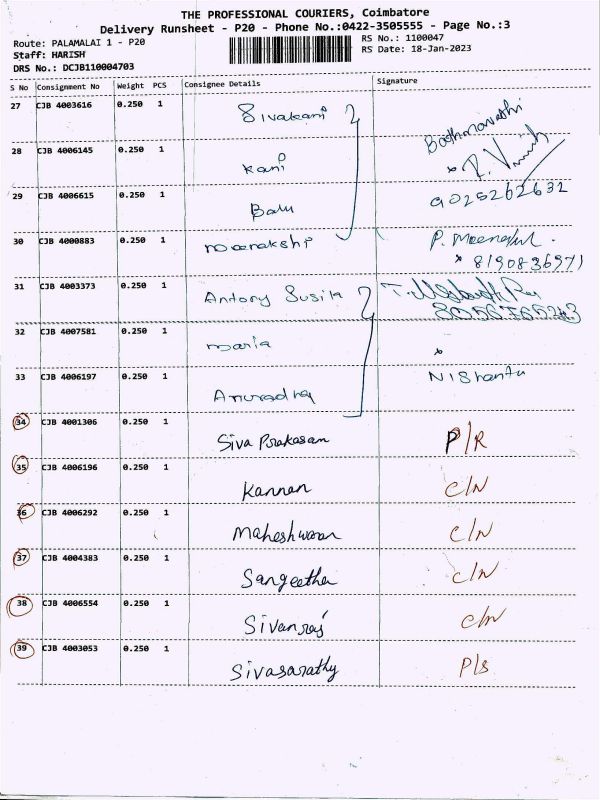 THE PROFESSIONAL COURIERS, Coimbatore
Delivery Runsheet - P20 - Phone No.:0422-3505555 - Page No.:3
Route: PALAMALAI 1 - P20
RS No.: 1100047
Staff: HARISH
RS Date: 18-Jan-2023
DRS No.: DCJB110004703
S No Consignment No Weight PCS Consignee Details Signature
27 CJB 4003616 0.250 1 Sivakani
Bathmavathi
28 CJB 4006145 0.250 1 Kani
29 CJB 4006615 0.250 1 Balu 9025262632
30 CJB 4000883 0.250 1 meenakshi P. Meenakshi.
8190836971
31 CJB 4003373 0.250 1 Antony Susila
32 CJB 4007581 0.250 1 maria
33 CJB 4006197 0.250 1 Anuradha Nishanth
34 CJB 4001306 0.250 1 Siva Prakasam P/R
35 CJB 4006196 0.250 1 Kannan C/N
36 CJB 4006292 0.250 1 Maheshwaran C/N
37 CJB 4004383 0.250 1 Sangeetha C/N
38 CJB 4006554 0.250 1 Sivanraj C/N
39 CJB 4003053 0.250 1 Sivasarathy P/S